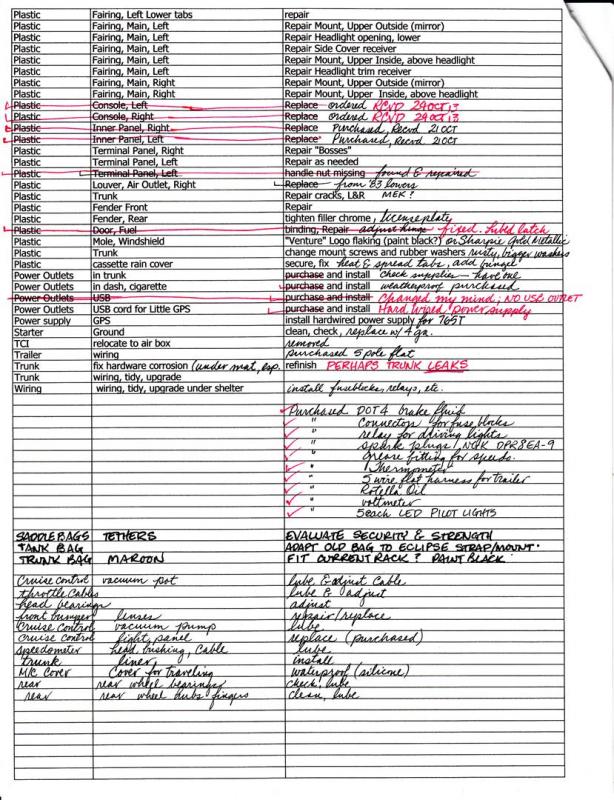 Plastic Fairing, Left Lower tabs repair
Plastic Fairing, Main, Left Repair Mount, Upper Outside (mirror)
Plastic Fairing, Main, Left Repair Headlight opening, lower
Plastic Fairing, Main, Left Repair Side Cover receiver
Plastic Fairing, Main, Left Repair Mount, Upper Inside, above headlight
Plastic Fairing, Main, Left Repair Headlight trim receiver
Plastic Fairing, Main, Right Repair Mount, Upper Outside (mirror)
Plastic Fairing, Main, Right Repair Mount, Upper Inside, above headlight
Plastic Console, Left Replace ordered RCVD 24OCT13
Plastic Console, Right Replace ordered RCVD 24OCT13
Plastic Inner Panel, Right Replace Purchased, Recvd 21OCT
Plastic Inner Panel, Left Replace Purchased, Recvd 21OCT
Plastic Terminal Panel, Right Repair "Bosses"
Plastic Terminal Panel, Left Repair as needed
Plastic Terminal Panel, Left handle nut missing found & repaired
Plastic Louver, Air Outlet, Right Replace from '83 lowers
Plastic Trunk Repair cracks, L&R MEK?
Plastic Fender Front Repair
Plastic Fender, Rear tighten filler chrome, license plate
Plastic Door, Fuel binding, Repair adjust hinge fixed. Lubed latch
Plastic Mole, Windshield "Venture" Logo flaking (paint black?) or Sharpie Gold Metallic
Plastic Trunk change mount screws and rubber washers rusty, bigger washers
Plastic cassette rain cover secure, fix heat & spread tabs, add bungee
Power Outlets in trunk purchase and install check supplies - have one
Power Outlets in dash, cigarette purchase and install weatherproof purchased
Power Outlets USB purchase and install Changed my mind; NO USB OUTLET
Power Outlets USB cord for Little GPS purchase and install Hard wired power supply
Power supply GPS install hardwired power supply for 765T
Starter Ground clean, check, replace w/ 4 ga.
TCI relocate to air box removed
Trailer wiring purchased 5 pole flat
Trunk fix hardware corrosion (under mat, esp. refinish PERHAPS TRUNK LEAKS
Trunk wiring, tidy, upgrade
Wiring wiring, tidy, upgrade under shelter install fuseblocks, relays, etc.
Purchased DOT4 brake fluid
" Connectors for fuse blocks
" relay for driving lights
" spark plugs, NGK DPR8EA-9
" Grease fitting for speedo.
" Thermometer
" 5 wire flat harness for trailer
" Rotella Oil
" voltmeter
" 5 each LED PILOT LIGHTS
SADDLEBAGS TETHERS EVALUATE SECURITY & STRENGTH
TANK BAG ADAPT OLD BAG TO ECLIPSE STRAP/MOUNT.
TRUNK BAG MAROON FIT CURRENT RACK? PAINT BLACK
Cruise Control vacuum pot lube & adjust cable
throttle Cables lube & adjust
head bearings adjust
front bumper lenses repair/replace
Cruise Control vacuum pump lube
Cruise Control light, panel replace (purchased)
speedometer head, bushing, Cable lube
trunk liner install
M/C Cover Cover for traveling waterproof (silicone)
rear rear wheel bearings check, lube
rear rear wheel hubs fingers clean, lube